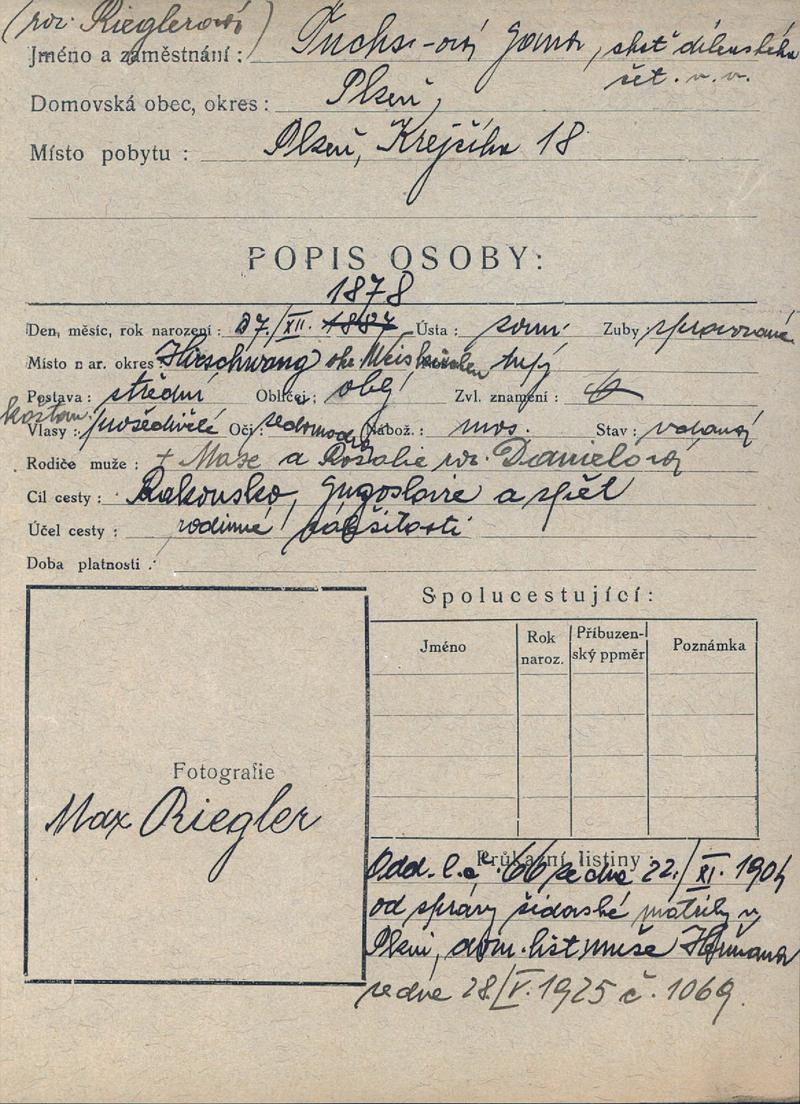 (roz. Rieglerová)
Jméno a zaměstnání : Fuchs-ová Jana, choť dílenského
Domovská obec, okres : Plzeň, šéf. v. v.
Místo pobytu : Plzeň, Krejčího 18
POPIS OSOBY:
1878
Den, měsíc, rok narození : 27./XII. 1887 Ústa : Zuby : spravované
Místo nar. okres : Hirschwang okr. tupý
Postava : střední Obličej : oblý Zvl. znamení :
kaštan.
Vlasy : prošedivělé Oči : šedomodré Nábož. : mos. Stav : vdaná
Rodiče muže : + Maxe a Rosalie roz. Danielová
Cíl cesty : Rakousko, Jugoslavie a zpět
Účel cesty : rodinné záležitosti
Doba platnosti :
Spolucestující :
Jméno Rok naroz. Příbuzen-ský ppměr Poznámka
Fotografie
Max Riegler
Průkazní listiny :
Odd. l. č. 66 ze dne 22./XI. 1904
od správy židovské matriky v
Plzni, dom. list muže Heřmana
ze dne 28/V. 1925 č. 1069.